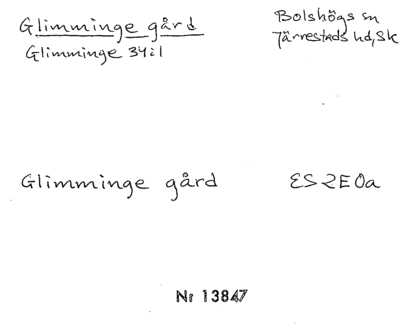 Glimminge gård
Bolshögs sn
Glimminge 34:1
Järrestads hd, Sk
Glimminge gård
ES 2E0a
Nr 13847